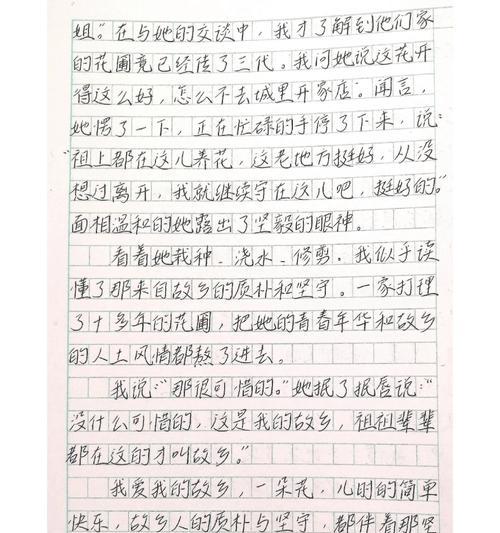 姐。”在与她的交谈中，我才了解到他们家
的花圃竟已经传了三代。我问她说这花开
得这么好，怎么不去城里开家店。闻言，
她愣了一下，正在忙碌的手停了下来，说：
“祖上都在这儿养花，这老地方挺好，从没
想过离开，我就继续守在这儿吧，挺好的。”
面相温和的她露出了坚毅的眼神。
看着她栽种、浇水、修剪，我似乎读
懂了那来自故乡的质朴和坚守。一家打理
了十多年的花圃，把她的青春年华和故乡
的人土风情都熬了进去。
我说：“那很可惜的。”她抿了抿唇说：“
没什么可惜的，这是我的故乡，祖祖辈辈
都在这的才叫故乡。”
我爱我的故乡，一朵花，儿时的简单
快乐，故乡人的质朴与坚守，都伴着那坚